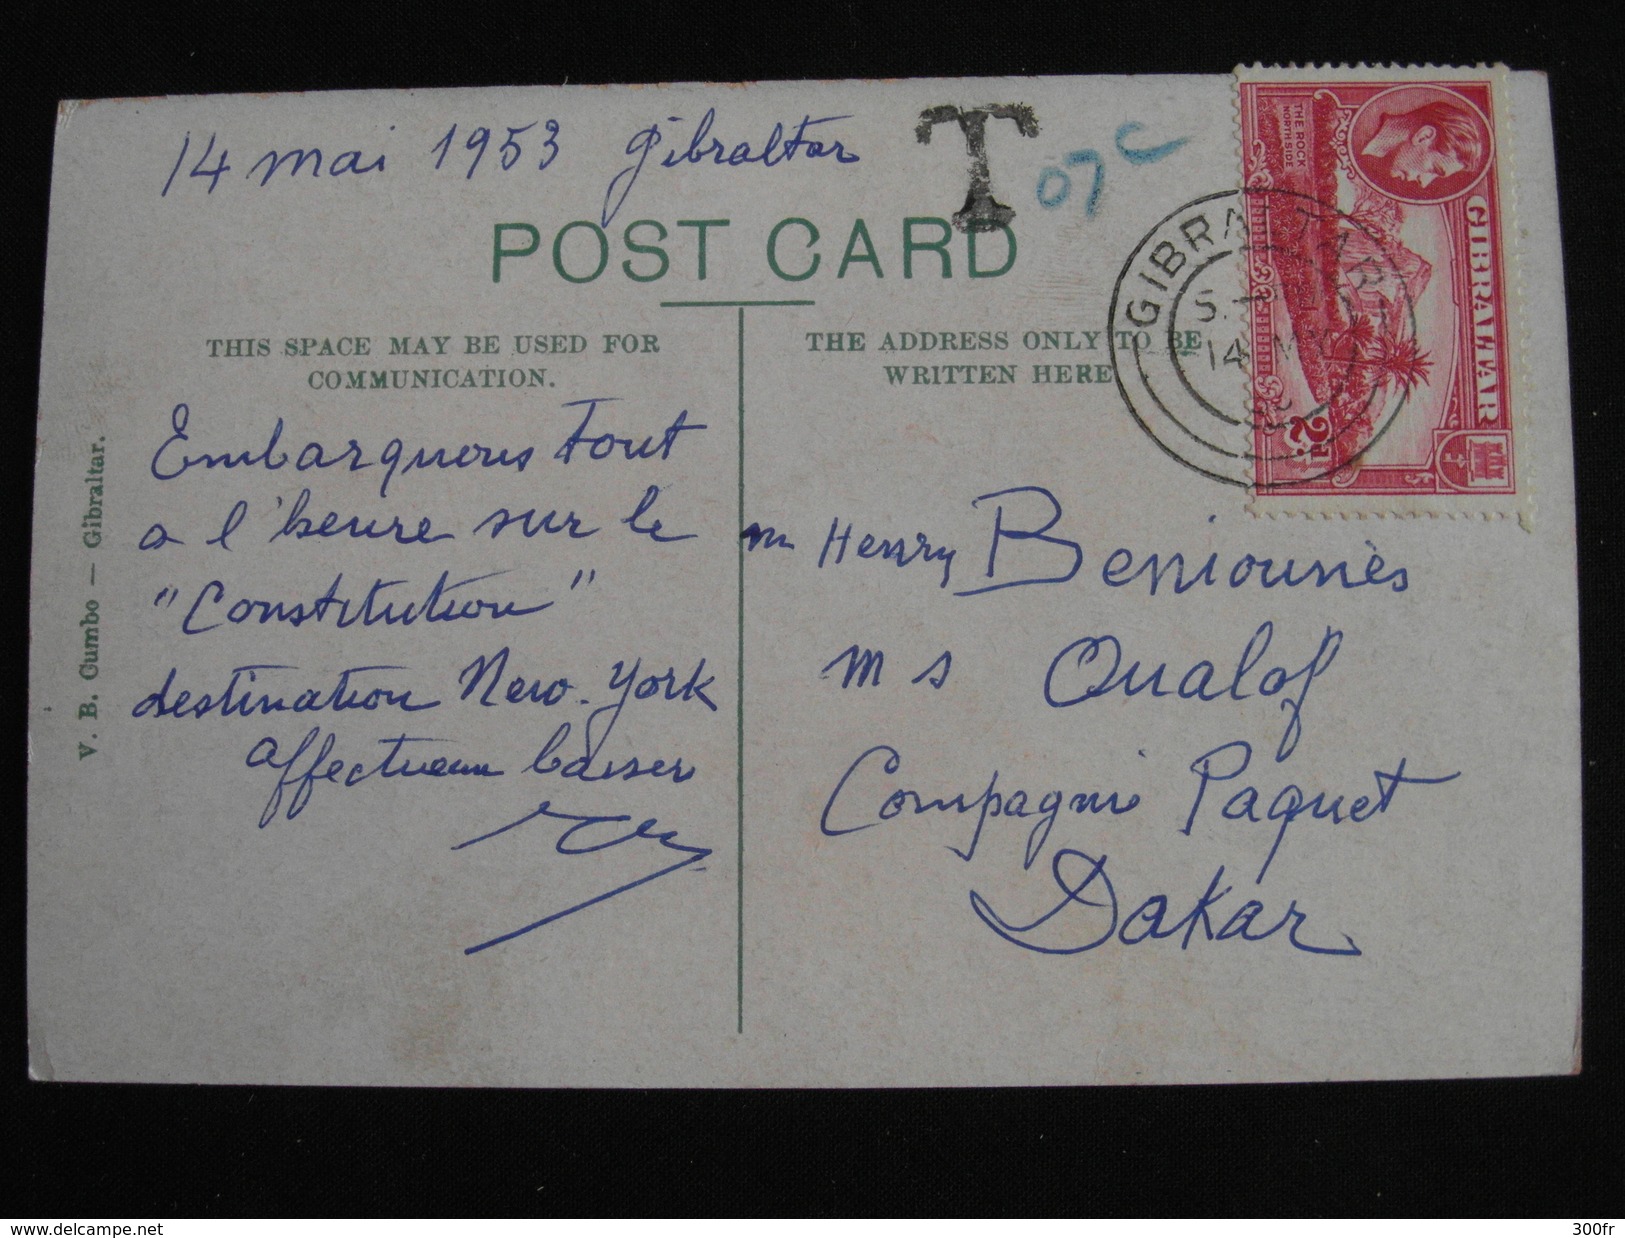 14 mai 1953 Gibraltar
T
07 c
POST CARD
THIS SPACE MAY BE USED FOR
COMMUNICATION.
THE ADDRESS ONLY TO BE
WRITTEN HERE
V. B. Cumbo — Gibraltar.
Embarquons tout
a l'heure sur le
"Constitution"
destination New-York
affectueux baiser
m Henry Beniounès
m s Oualof
Compagnie Paquet
Dakar
GIBRALTAR
THE ROCK
NORTH SIDE
2D
GIBRALTAR
14
www.delcampe.net
300fr